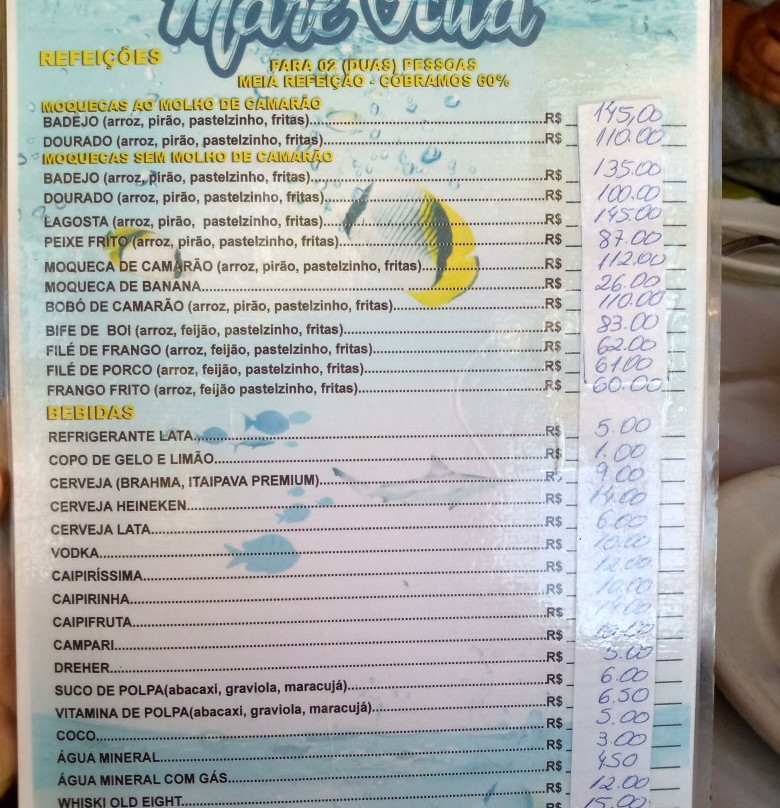 Maré
REFEIÇÕES
PARA 02 (DUAS) PESSOAS
MEIA REFEIÇÃO - COBRAMOS 60%
MOQUECAS AO MOLHO DE CAMARÃO
BADEJO (arroz, pirão, pastelzinho, fritas)......R$ 145,00
DOURADO (arroz, pirão, pastelzinho, fritas)......R$ 110.00
MOQUECAS SEM MOLHO DE CAMARÃO
BADEJO (arroz, pirão, pastelzinho, fritas)......R$ 135.00
DOURADO (arroz, pirão, pastelzinho, fritas)......R$ 100.00
LAGOSTA (arroz, pirão, pastelzinho, fritas)......R$ 145.00
PEIXE FRITO (arroz, pirão, pastelzinho, fritas)......R$ 87.00
MOQUECA DE CAMARÃO (arroz, pirão, pastelzinho, fritas)......R$ 112.00
MOQUECA DE BANANA......R$ 26.00
BOBÓ DE CAMARÃO (arroz, pirão, pastelzinho, fritas)......R$ 110.00
BIFE DE BOI (arroz, feijão, pastelzinho, fritas)......R$ 83.00
FILÉ DE FRANGO (arroz, feijão, pastelzinho, fritas)......R$ 62.00
FILÉ DE PORCO (arroz, feijão, pastelzinho, fritas)......R$ 61.00
FRANGO FRITO (arroz, feijão pastelzinho, fritas)......R$ 60.00
BEBIDAS
REFRIGERANTE LATA......R$ 5.00
COPO DE GELO E LIMÃO......R$ 1.00
CERVEJA (BRAHMA, ITAIPAVA PREMIUM)......R$ 9.00
CERVEJA HEINEKEN......R$ 14.00
CERVEJA LATA......R$ 6.00
VODKA......R$ 10.00
CAIPIRÍSSIMA......R$ 12.00
CAIPIRINHA......R$ 10.00
CAIPIFRUTA......R$
CAMPARI......R$
DREHER......R$ 5.00
SUCO DE POLPA(abacaxi, graviola, maracujá)......R$ 6.00
VITAMINA DE POLPA(abacaxi, graviola, maracujá)......R$ 6.50
COCO......R$ 5.00
ÁGUA MINERAL......R$ 3.00
ÁGUA MINERAL COM GÁS......R$ 4.50
WHISKI OLD EIGHT......R$ 12.00
R$ 15.00